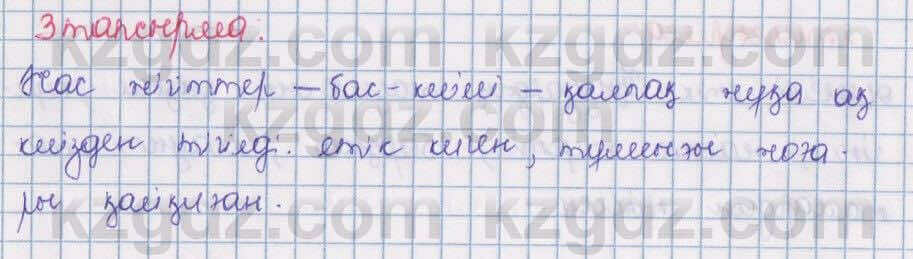 3 тапсырма.
Жас жігіттер – бас-киімі – қалпақ жұқа ақ
киізден тігілді. етік киген, тұмсығы жоға-
ры қайқиған.
kzgdz.com kzgdz.com
kzgdz.com
kzgdz.com kzgdz.com